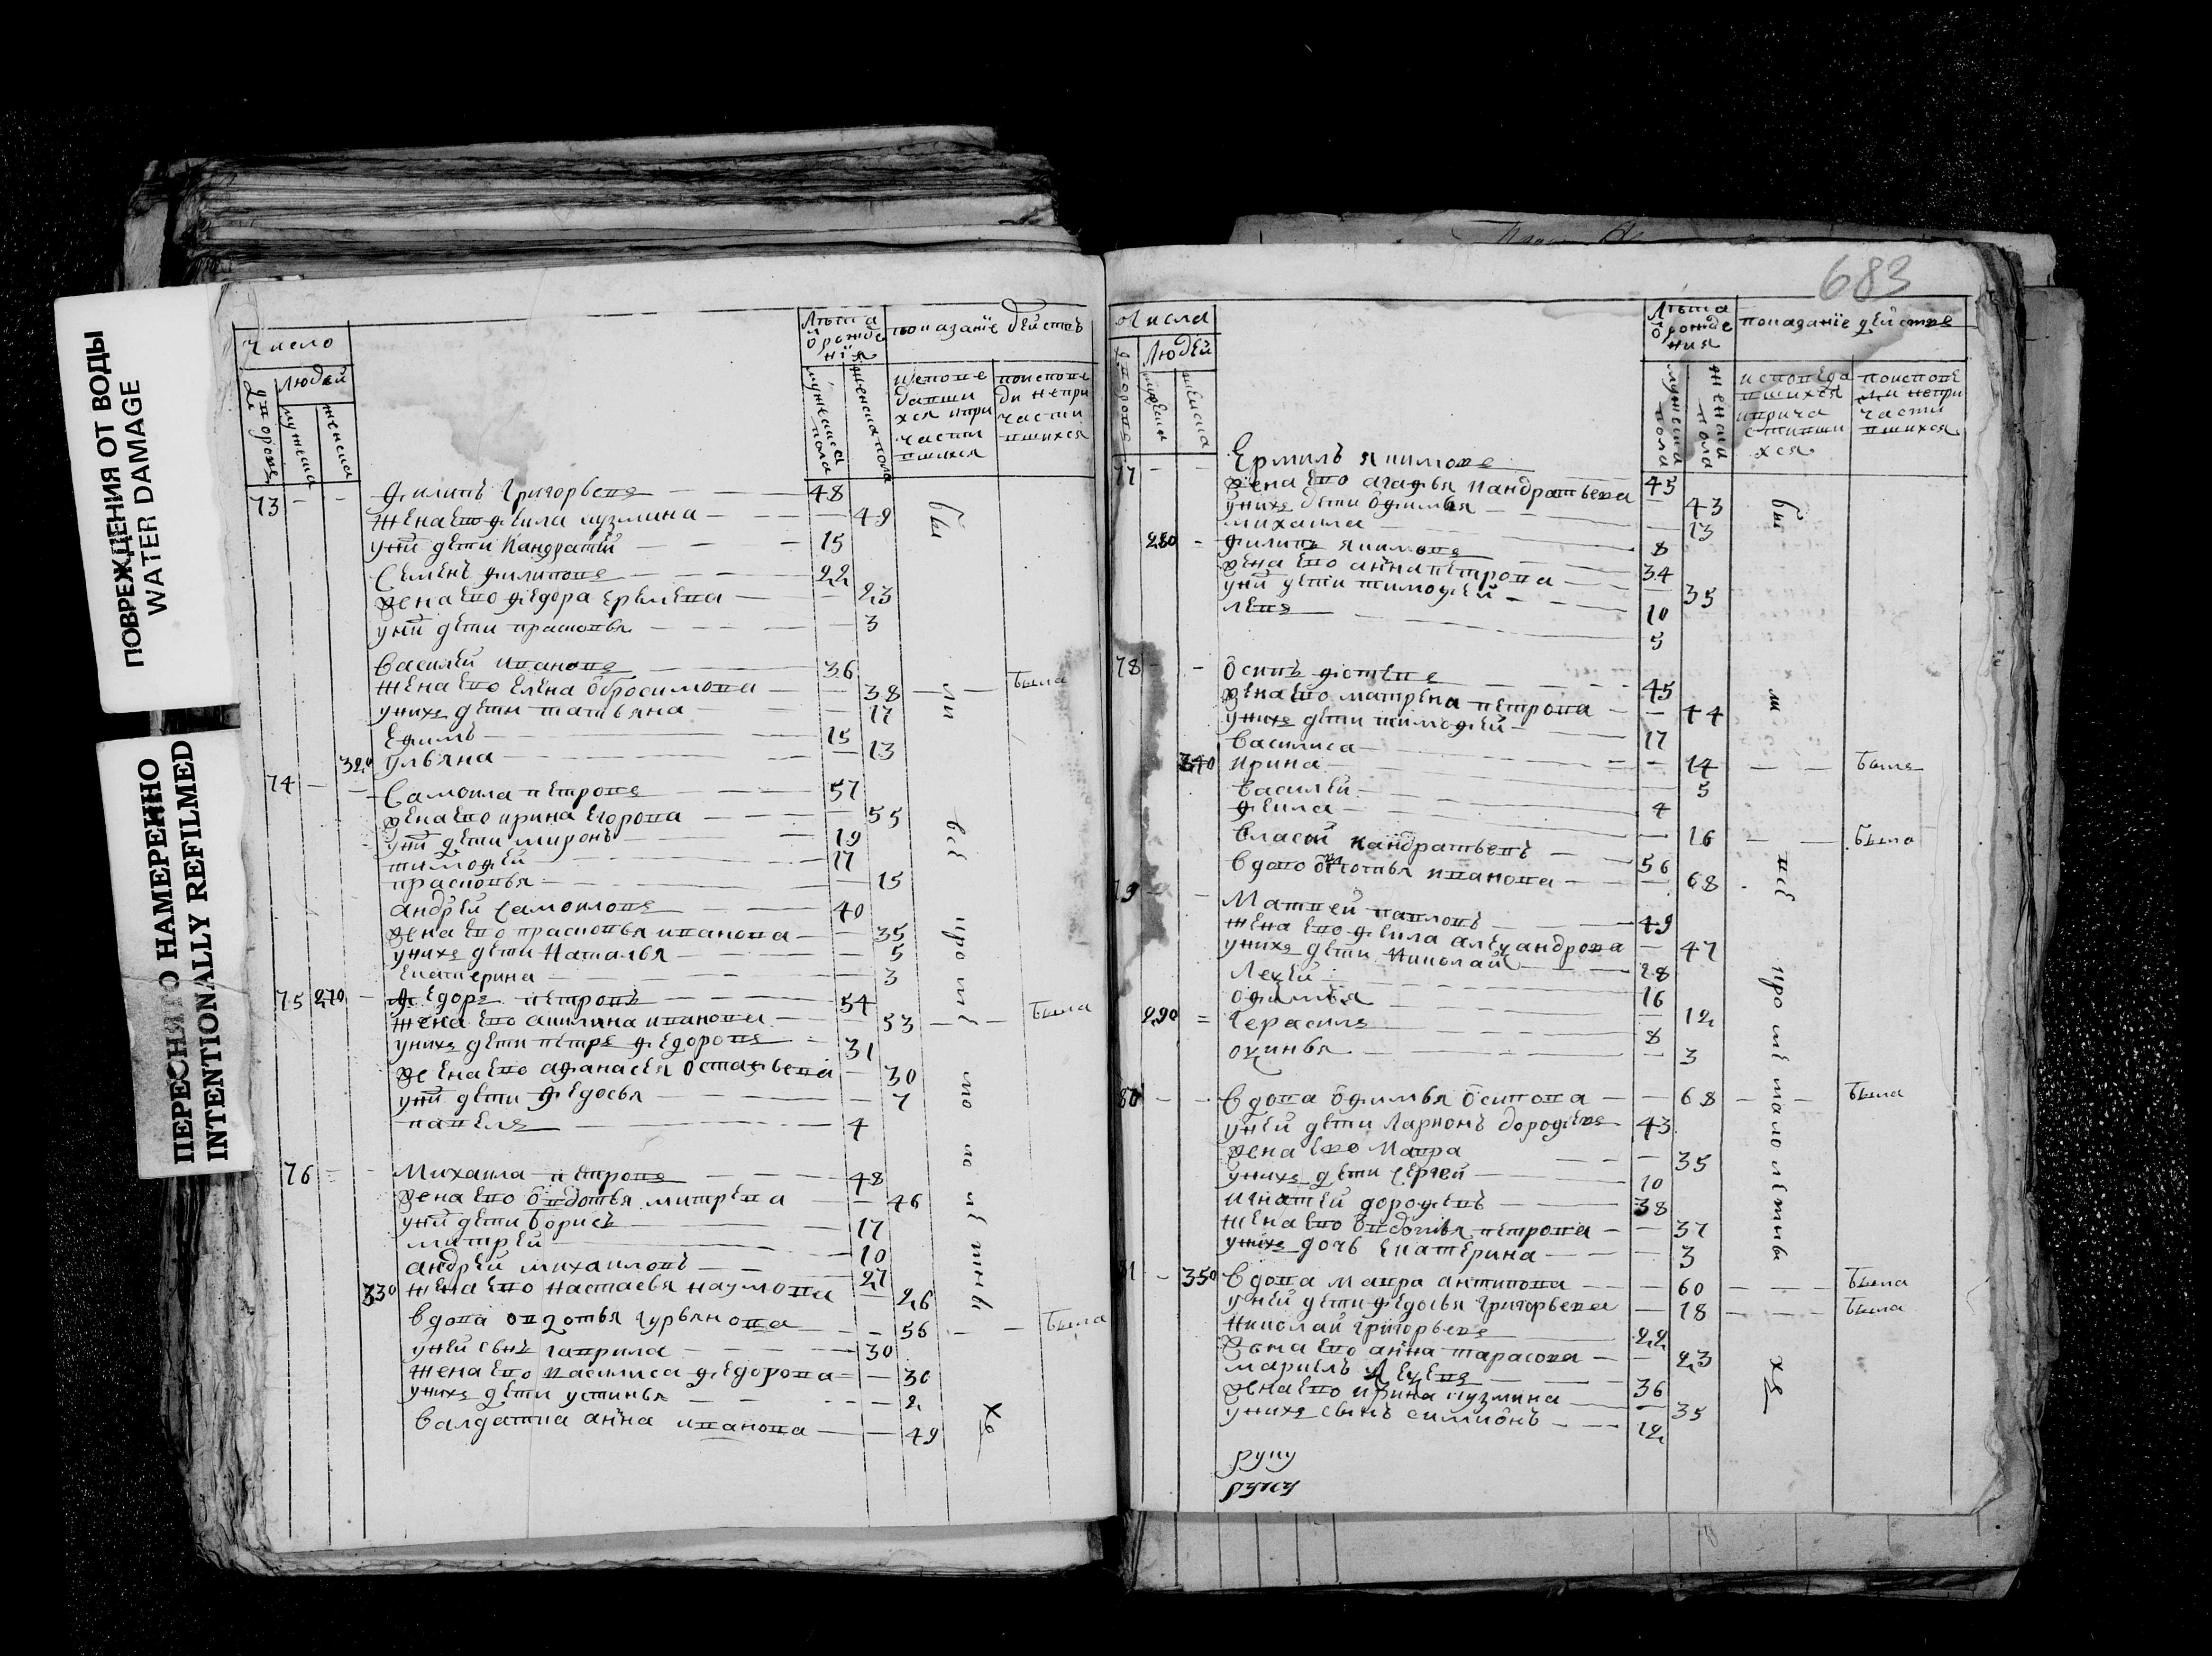 ПОВРЕЖДЕНИЯ ОТ ВОДЫ
WATER DAMAGE
ПЕРЕСНЯТО НАМЕРЕННО
INTENTIONALLY REFILMED
Число
людей
мужеска
женска
Лѣта ѿ рожденїя
мужеска пола
женска пола
показанїе действъ
исповедавшихся и причастившихся
по исповеди непричастившихся
73 - - Филипъ Григорьевъ 48
жена ево Фекла кузмина 49
у ни дети Кандратїй 15
Семенъ филиповъ 22
жена ево Федора Ермлева 23
у ни дети прасковья 3
Василей ивановъ 36
жена ево Елена Обросимова 38 была
у нихъ дети татьяна 17
Ефимъ 15
320 ульяна 13
74 - - Самоила петровъ 57
жена ево ирина Егорова 55
у ни дети миронъ 19
тимофей 17
прасковья 15
андрей самоиловъ 40
жена ево прасковья иванова 35
у нихъ дети Наталья 5
Екатерина 3
75 270 - Федоръ петровъ 54
жена ево акилина иванова 53 была
у нихъ дети петръ федоровъ 31
жена ево афанасья Остафьева 30
у ни дети Федосья 7
павелъ 4
76 - - Михаила петровъ 48
жена ево овдотья митрева 46
у ни дети борисъ 17
митрей 10
андрей михаиловъ 27
330 жена ево настасья наумова 26
вдова овдотья гурьянова 56 была
у ней сынъ гаврила 30
жена ево василиса федорова 30
у нихъ дети устинья 2
Салдатка анна иванова 49
бы
ли
все
кроме
мо ло летныхъ
683
Числа
людей
мужеска
женска
Лѣта ѿ рождения
мужеска пола
женска пола
показанїе действъ
исповедавшихся и причастившихся
по исповеди непричастившихся
77 - - Ермилъ якимовъ 45
жена ево агафья кандратьева 43
у нихъ дети Офимья 13
михаила 8
280 - филипъ якимовъ 34
жена ево анна петрова 35
у ни дети тимофей 10
левъ 5
78 - - Осипъ фотеевъ 45
жена ево матрена петрова 44
у нихъ дети тимофей 17
василиса 14 была
340 ирина 5
василей 4
фекла 16 была
власей кандратьевъ 56
вдова овдотья иванова 68
79 - - Матвей павловъ 49
жена ево фекла александрова 47
у нихъ дети николай 18
Лексей 16
офимья 12
290 = Герасимъ 8
оксинья 3
80 - - вдова Офимья Осипова 68 была
у ней дети Ларионъ дорофеевъ 43
жена ево Мавра 35
у нихъ дети сергей 10
игнатей дорофеевъ 38
жена ево овдотья петрова 37
у нихъ дочь Екатерина 3
81 - 350 вдова Мавра антипова 60 была
у ней дети федосья григорьева 18 была
николай григорьевъ 22
жена ево анна тарасова 23
маркелъ Алексеевъ 36
жена ево ирина кузмина 35
у нихъ сынъ симионъ 12
руку
бы
ли
все
кроме малолетныхъ